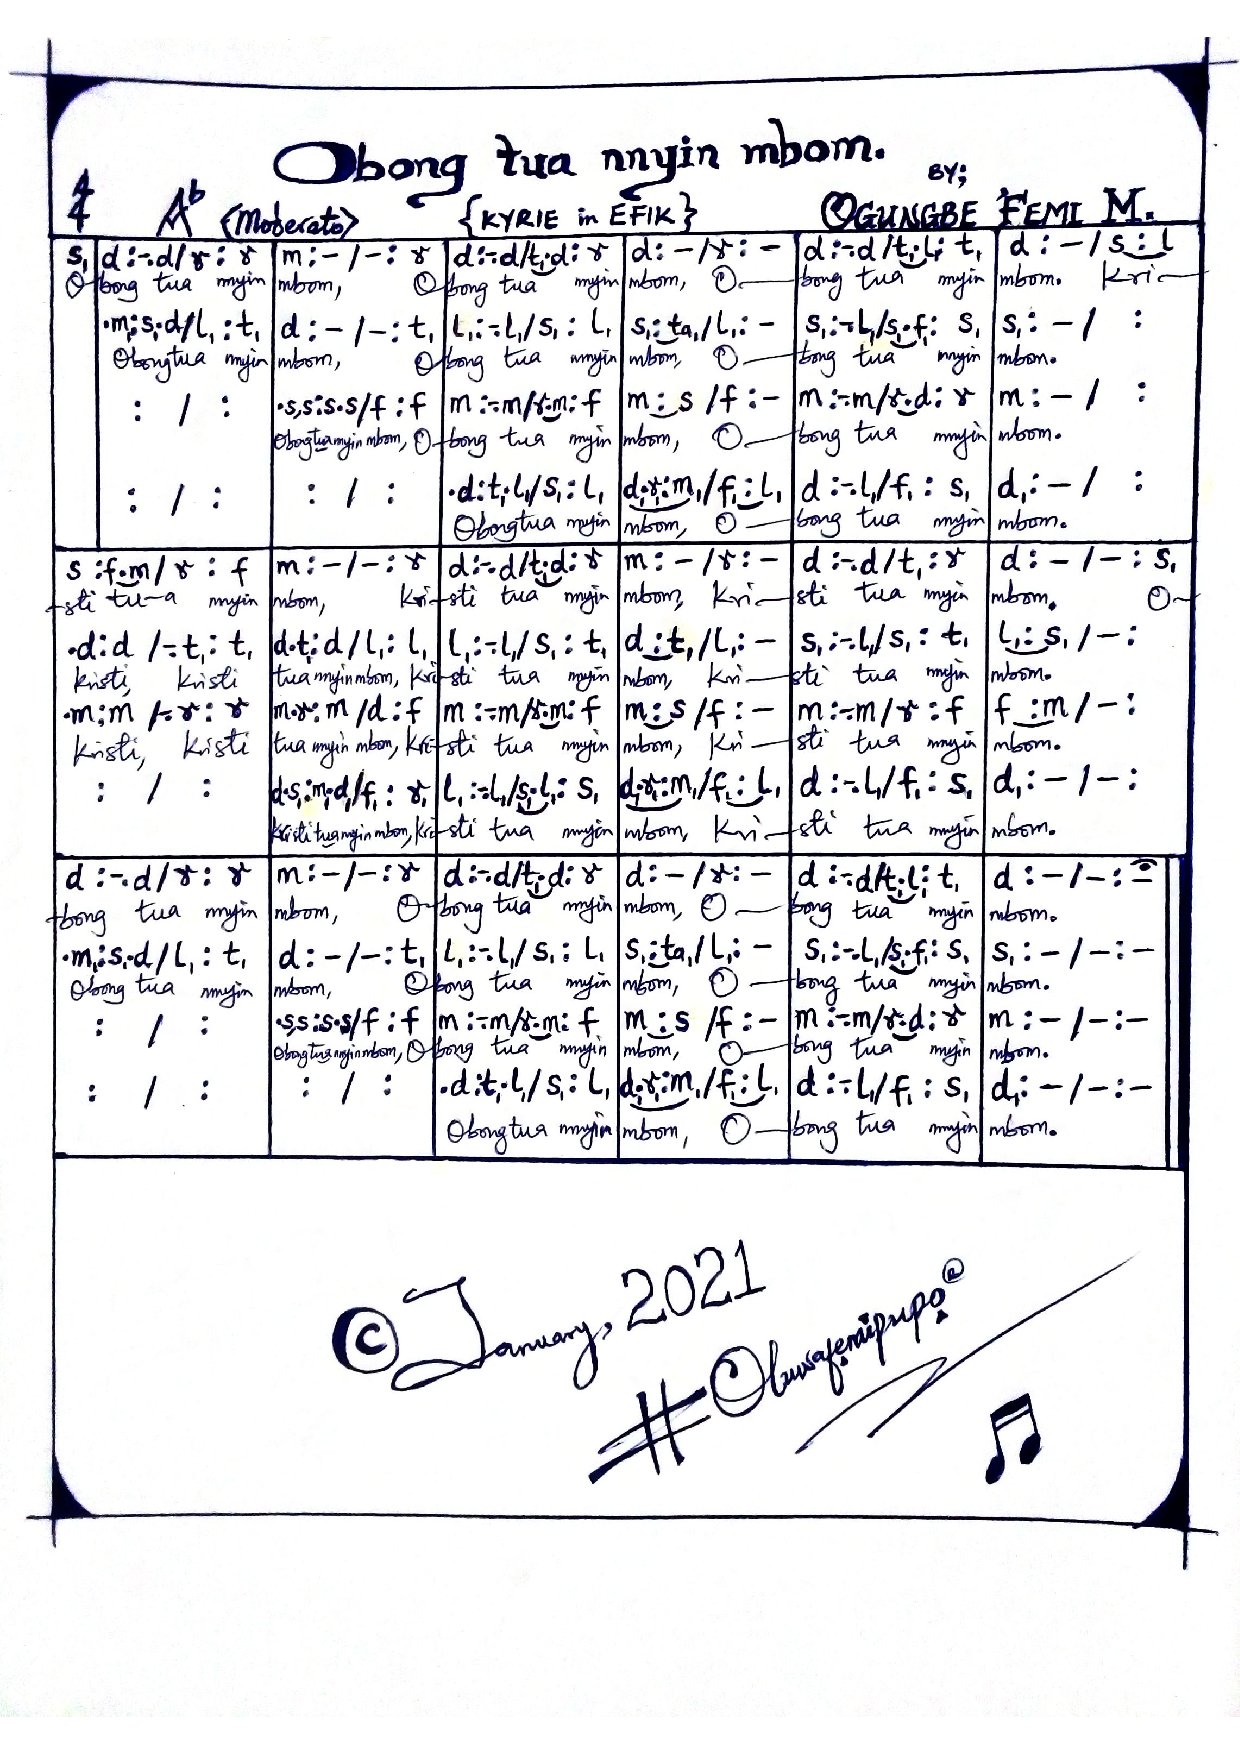 Obong tua nnyin mbom.
BY;
4/4 Ab (Moderato) {KYRIE in EFIK} OGUNGBE FEMI M.
s, d :-.d/r : r m :-/-: r d :-.d/t,.d: r d : -/r : - d :-.d/t,.l,: t, d : -/s : l
O bong tua nnyin mbom, O bong tua nnyin mbom, O bong tua nnyin mbom. Kri
.m,:s,.d/l, : t, d : -/-: t, l,:-.l,/s, : l, s,:ta,/l,: - s,:-.l,/s,.f,: s, s, : -/ :
Obong tua nnyin mbom, O bong tua nnyin mbom, O bong tua nnyin mbom.
: / : .s,s:s.s/f : f m :-.m/r.m: f m : s/f : - m :-.m/r.d: r m : -/ :
Obong tua nnyin mbom, O bong tua nnyin mbom, O bong tua nnyin mbom.
: / : : / : .d:t,.l,/s, : l, d,.r,:m,/f,: l, d :-.l,/f, : s, d, : -/ :
Obong tua nnyin mbom, O bong tua nnyin mbom.
s :f.m/r : f m :-/-: r d :-.d/t,.d: r m : -/r : - d :-.d/t, : r d : -/-: s,
sti tu-a nnyin mbom, Kri sti tua nnyin mbom, Kri sti tua nnyin mbom. O
.d:d/-.t,: t, d.t,:d/l,: l, l,:-.l,/s, : t, d :t,/l,: - s,:-.l,/s, : t, l,: s,/-:
kristi, kristi tua nnyin mbom, Kri sti tua nnyin mbom, Kri sti tua nnyin mbom.
.m:m/-.r: r m.r:m/d : f m :-.m/r.m: f m : s/f : - m :-.m/r : f f : m/-:
kristi, kristi tua nnyin mbom, Kri sti tua nnyin mbom, Kri sti tua nnyin mbom.
: / : d.s,:m,.d,/f, : r, l,:-.l,/s,.l,: s, d,.r,:m,/f,: l, d :-.l,/f, : s, d, : -/-:
kristi tua nnyin mbom, Kri sti tua nnyin mbom, Kri sti tua nnyin mbom.
d :-.d/r : r m :-/-: r d :-.d/t,.d: r d : -/r : - d :-.d/t,.l,: t, d : -/-: -
bong tua nnyin mbom, O bong tua nnyin mbom, O bong tua nnyin mbom.
.m,:s,.d/l, : t, d : -/-: t, l,:-.l,/s, : l, s,:ta,/l,: - s,:-.l,/s,.f,: s, s, : -/-: -
Obong tua nnyin mbom, O bong tua nnyin mbom, O bong tua nnyin mbom.
: / : .s,s:s.s/f : f m :-.m/r.m: f m : s/f : - m :-.m/r.d: r m : -/-: -
Obong tua nnyin mbom, O bong tua nnyin mbom, O bong tua nnyin mbom.
: / : : / : .d:t,.l,/s, : l, d,.r,:m,/f,: l, d :-.l,/f, : s, d, : -/-: -
Obong tua nnyin mbom, O bong tua nnyin mbom.
© January, 2021
#Oluwafemipupo®